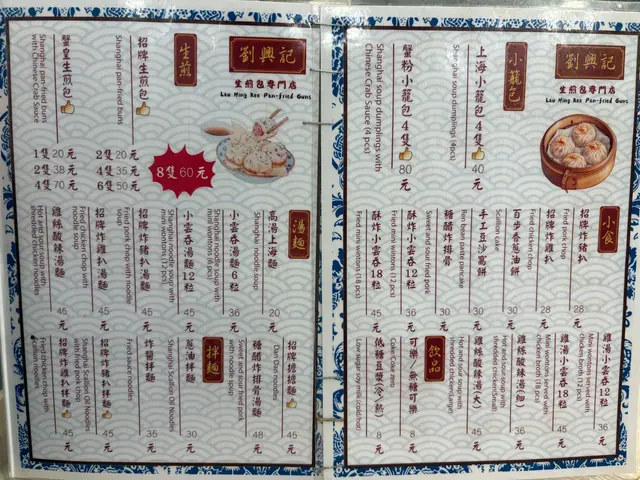 劉興記
生煎包專門店
Lau Hing Kee Pan-Fried Buns
生煎
招牌生煎包
Shanghai pan-fried buns
2隻 20元
4隻 35元
6隻 50元
8隻 60元
蟹皇生煎包
Shanghai pan-fried buns
with Chinese Crab Sauce
1隻 20元
2隻 38元
4隻 70元
湯麵
高湯上海麵 20元
Shanghai noodle soup
小雲吞湯麵 6粒 36元
Shanghai noodle soup with
mini wontons (6 pcs)
小雲吞湯麵 12粒 45元
Shanghai noodle soup with
mini wontons (12 pcs)
招牌炸豬扒湯麵 45元
Fried pork chop with noodles
soup
招牌炸雞扒湯麵 45元
Fried chicken chop with
noodle soup
雞絲酸辣湯麵 45元
Hot and sour soup with
shredded chicken noodles
拌麵
招牌擔擔麵 45元
Dan Dan noodles
糖醋炸排骨湯麵 48元
Sweet and sour fried pork
with noodle soup
蔥油拌麵 30元
Shanghai Scallion Oil Noodles
炸醬拌麵 35元
Fried sauce noodles
招牌炸豬扒拌麵 45元
Shanghai Scallion Oil Noodles
with fried pork chop
招牌炸雞扒拌麵 45元
Fried chicken chop with
scallion noodles
劉興記
生煎包專門店
Lau Hing Kee Pan-Fried Buns
小籠包
上海小籠包 4隻 40元
Shanghai soup dumplings (4pcs)
蟹粉小籠包 4隻 80元
Shanghai soup dumplings with
Chinese Crab Sauce (4 pcs)
小食
招牌炸豬扒 28元
Fried pork chop
招牌炸雞扒 28元
Fried chicken chop
百步香蔥油餅 30元
Scallion cake
手工豆沙窩餅 30元
Red bean paste pancake
糖醋炸排骨 30元
Sweet and sour fried pork
酥炸小雲吞 12粒 36元
Fried mini wontons (12 pcs)
酥炸小雲吞 18粒 45元
Fried mini wontons (18 pcs)
雞湯小雲吞 12粒 36元
Mini wontons served with
chicken broth (12 pcs)
雞湯小雲吞 18粒 45元
Mini wontons served with
chicken broth (18 pcs)
雞絲酸辣湯(細) 36元
Hot and sour soup with
shredded chicken(Small)
雞絲酸辣湯(大) 45元
Hot and sour soup with
shredded chicken(Large)
飲品
可樂/無糖可樂 8元
Coke/ Coke zero
低糖豆漿(冷/熱) 8元
Low sugar soy milk (cold/hot)